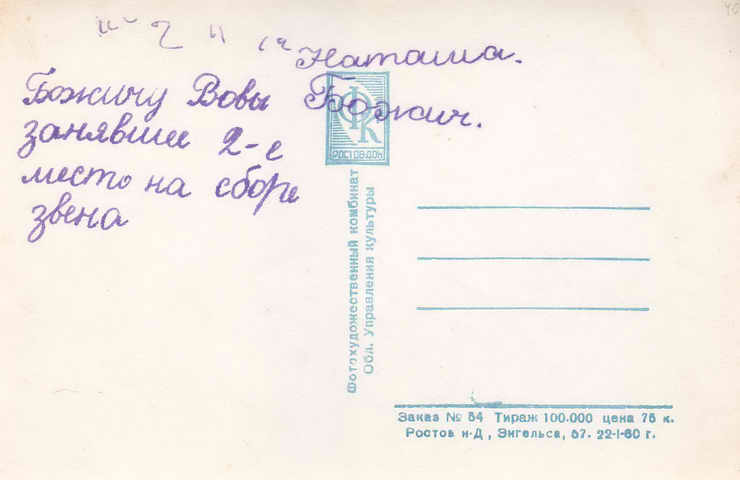 Наташа.
Божичу Вовы Божич.
занявшии 2-е
место на сборе
звена
ФК
РОСТОВ-ДОН
Фотохудожественный комбинат
Обл. Управления культуры
Заказ № 84 Тираж 100.000 цена 75 к.
Ростов н-Д, Энгельса, 57. 22-I-60 г.